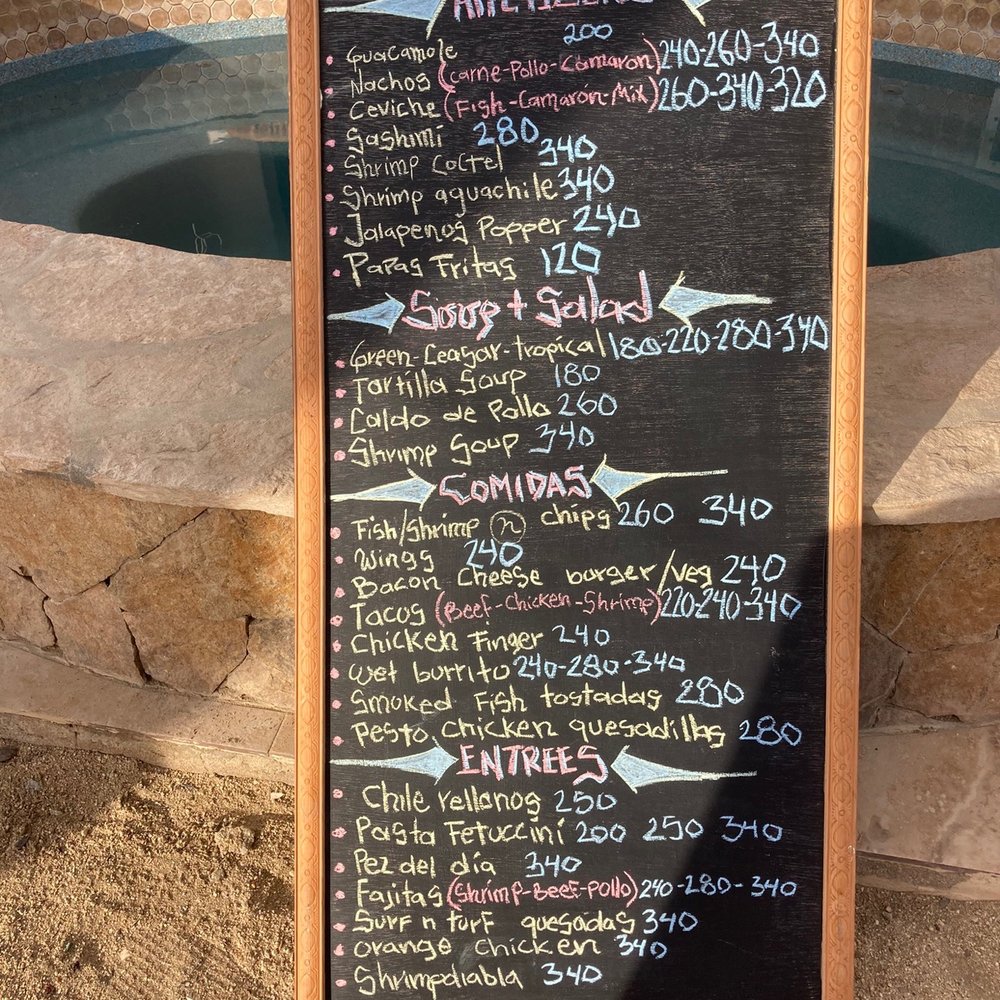 APPETIZERS
Guacamole 200
Nachos (carne-Pollo-Camaron) 240-260-340
Ceviche (Fish-Camaron-Mix) 260-340-320
Sashimi 280
Shrimp Coctel 340
Shrimp aguachile 340
Jalapenos Popper 240
Papas Fritas 120
Soup + Salad
Green-Ceasar-tropical 180-220-280-340
Tortilla Soup 180
Caldo de Pollo 260
Shrimp Soup 340
COMIDAS
Fish/Shrimp n chips 260 340
Wings 240
Bacon Cheese burger/veg 240
Tacos (Beef-Chicken-Shrimp) 220-240-340
Chicken Finger 240
Wet burrito 240-280-340
Smoked Fish tostadas 280
Pesto Chicken quesadillas 280
ENTREES
Chile rellenos 250
Pasta Fetuccini 200 250 340
Pez del día 340
Fajitas (Shrimp-Beef-Pollo) 240-280-340
Surf n turf quesadas 340
orange chicken 340
Shrimpdiabla 340